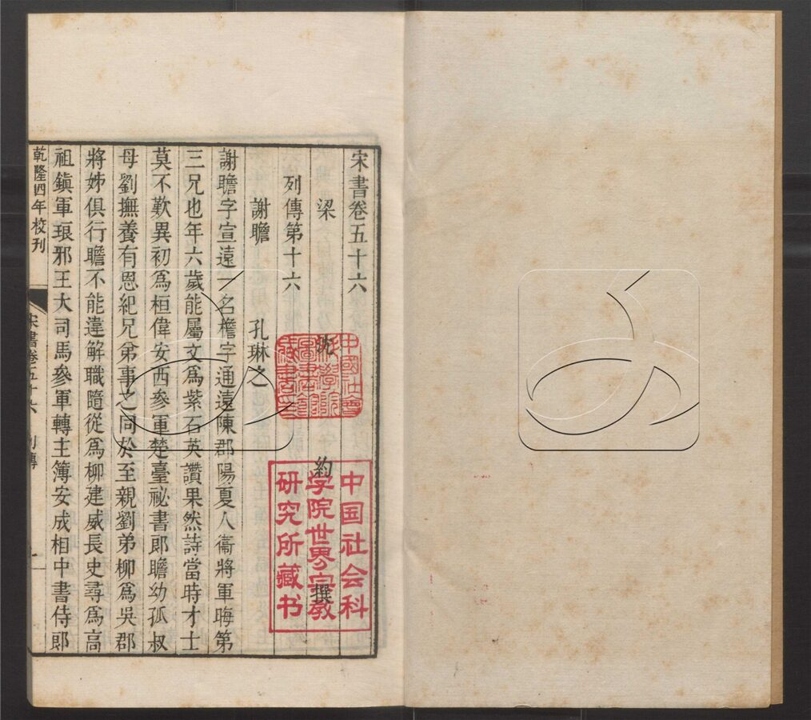 宋書卷五十六
梁 沈 約 撰
列傳第十六
謝瞻 孔琳之
謝瞻字宣遠一名檐字通遠陳郡陽夏人衞將軍晦第
三兄也年六歲能屬文爲紫石英讚果然詩當時才士
莫不歎異初爲桓偉安西參軍楚臺祕書郎瞻幼孤叔
母劉撫養有恩紀兄弟事之同於至親劉弟柳爲吳郡
將姊俱行瞻不能違解職隨從爲柳建威長史尋爲高
祖鎭軍琅邪王大司馬參軍轉主簿安成相中書侍郎
乾隆四年校刊
宋書卷五十六 列傳 一
中國社會
科學院
圖書館
藏書印
中国社会科
学院世界宗教
研究所藏书